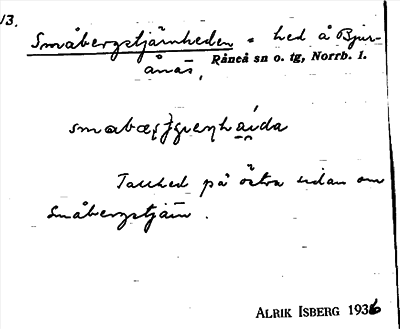 13.
Småbergstjärnheden = hed å Bjur-
ånäs,
Råneå sn o. tg, Norrb. l.
Tallhed på östra sidan om
Småbergstjärn.
ALRIK ISBERG 1936